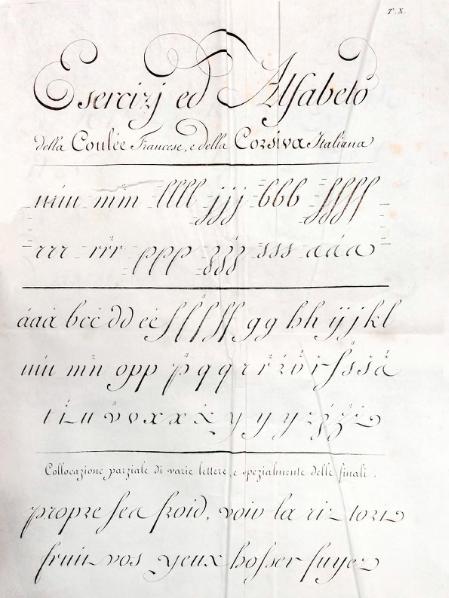 T. X.
Esercizj ed Alfabeto
della Coulée Francese, e della Corsiva Italiana
mm llll jjj bbb ffff
rrr rrr ppp zzz sss aaa
aaa bcc dd ee ffffff gg hh ijjkl
opp p q q r r
t v v x x x y y y z z z
Collocazione parziale di varie lettere, e spezialmente delle finali.
propre sea froid, voir la
fruit vos yeux hosser fuyez